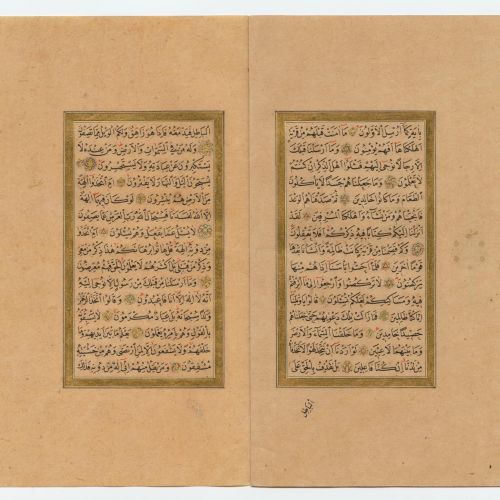 بِاٰيَةٍ كَمَا اُرْسِلَ الْاَوَّلُونَ مَا اٰمَنَتْ قَبْلَهُمْ مِنْ قَرْيَةٍ
اَهْلَكْنَاهَا اَفَهُمْ يُؤْمِنُونَ وَمَا اَرْسَلْنَا قَبْلَكَ
اِلَّا رِجَالًا نُوحِي اِلَيْهِمْ فَسْئَلُوا اَهْلَ الذِّكْرِ اِنْ كُنْتُمْ
لَا تَعْلَمُونَ وَمَا جَعَلْنَاهُمْ جَسَدًا لَا يَأْكُلُونَ
الطَّعَامَ وَمَا كَانُوا خَالِدِينَ ثُمَّ صَدَقْنَاهُمُ الْوَعْدَ
فَاَنْجَيْنَاهُمْ وَمَنْ نَشَاءُ وَاَهْلَكْنَا الْمُسْرِفِينَ لَقَدْ
اَنْزَلْنَا اِلَيْكُمْ كِتَابًا فِيهِ ذِكْرُكُمْ اَفَلَا تَعْقِلُونَ
وَكَمْ قَصَمْنَا مِنْ قَرْيَةٍ كَانَتْ ظَالِمَةً وَاَنْشَأْنَا بَعْدَهَا
قَوْمًا اٰخَرِينَ فَلَمَّا اَحَسُّوا بَأْسَنَا اِذَا هُمْ مِنْهَا
يَرْكُضُونَ لَا تَرْكُضُوا وَارْجِعُوا اِلَى مَا اُتْرِفْتُمْ
فِيهِ وَمَسَاكِنِكُمْ لَعَلَّكُمْ تُسْئَلُونَ قَالُوا يَا وَيْلَنَا
اِنَّا كُنَّا ظَالِمِينَ فَمَا زَالَتْ تِلْكَ دَعْوٰيهُمْ حَتَّى جَعَلْنَاهُمْ
حَصِيدًا خَامِدِينَ وَمَا خَلَقْنَا السَّمَاءَ وَالْاَرْضَ
وَمَا بَيْنَهُمَا لَاعِبِينَ لَوْ اَرَدْنَا اَنْ نَتَّخِذَ لَهْوًا لَاتَّخَذْنَاهُ
مِنْ لَدُنَّا اِنْ كُنَّا فَاعِلِينَ بَلْ نَقْذِفُ بِالْحَقِّ عَلَى
الباطل
الْبَاطِلِ فَيَدْمَغُهُ فَاِذَا هُوَ زَاهِقٌ وَلَكُمُ الْوَيْلُ مِمَّا تَصِفُونَ
وَلَهُ مَنْ فِي السَّمٰوَاتِ وَالْاَرْضِ وَمَنْ عِنْدَهُ لَا
يَسْتَكْبِرُونَ عَنْ عِبَادَتِهِ وَلَا يَسْتَحْسِرُونَ
يُسَبِّحُونَ الَّيْلَ وَالنَّهَارَ لَا يَفْتُرُونَ اَمِ اتَّخَذُوا اٰلِهَةً
مِنَ الْاَرْضِ هُمْ يُنْشِرُونَ لَوْ كَانَ فِيهِمَا اٰلِهَةٌ
اِلَّا اللّٰهُ لَفَسَدَتَا فَسُبْحَانَ اللّٰهِ رَبِّ الْعَرْشِ عَمَّا يَصِفُونَ
لَا يُسْئَلُ عَمَّا يَفْعَلُ وَهُمْ يُسْئَلُونَ اَمِ اتَّخَذُوا
مِنْ دُونِهِ اٰلِهَةً قُلْ هَاتُوا بُرْهَانَكُمْ هٰذَا ذِكْرُ مَنْ مَعِيَ
وَذِكْرُ مَنْ قَبْلِي بَلْ اَكْثَرُهُمْ لَا يَعْلَمُونَ الْحَقَّ فَهُمْ مُعْرِضُونَ
وَمَا اَرْسَلْنَا مِنْ قَبْلِكَ مِنْ رَسُولٍ اِلَّا نُوحِي اِلَيْهِ
اَنَّهُ لَا اِلٰهَ اِلَّا اَنَا فَاعْبُدُونِ وَقَالُوا اتَّخَذَ الرَّحْمٰنُ
وَلَدًا سُبْحَانَهُ بَلْ عِبَادٌ مُكْرَمُونَ لَا يَسْبِقُونَهُ
بِالْقَوْلِ وَهُمْ بِاَمْرِهِ يَعْمَلُونَ يَعْلَمُ مَا بَيْنَ اَيْدِيهِمْ وَمَا
خَلْفَهُمْ وَلَا يَشْفَعُونَ اِلَّا لِمَنِ ارْتَضٰى وَهُمْ مِنْ خَشْيَتِهِ
مُشْفِقُونَ وَمَنْ يَقُلْ مِنْهُمْ اِنِّي اِلٰهٌ مِنْ دُونِهِ فَذٰلِكَ